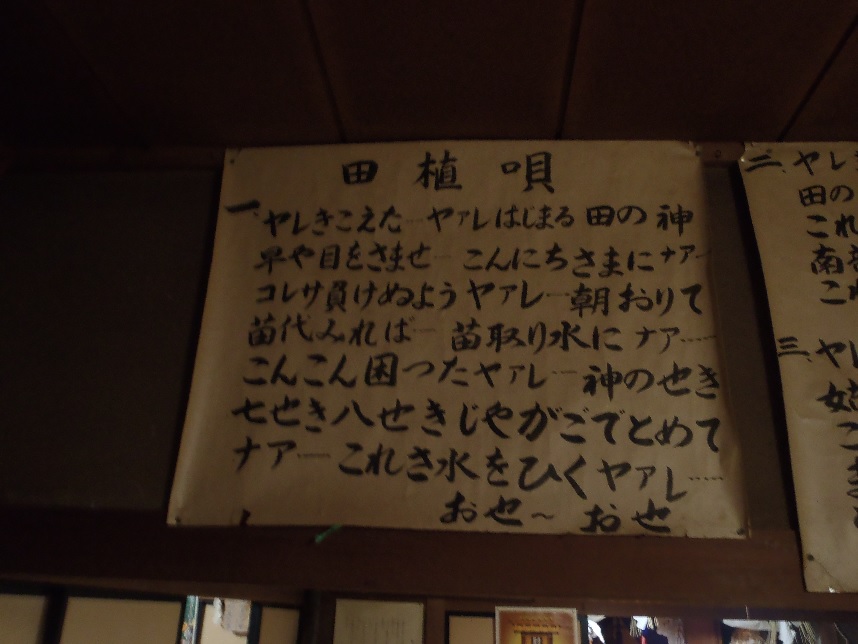 田植唄
一、ヤレきこえた…ヤァレはじまる田の神
早や目をさませ…こんにちさまにナアー
コレサ負けぬようヤァレ…朝おりて
苗代みれば…苗取り水にナァー……
こんこん困ったヤァレ…神のせき
七せき八せきじやがごでとめて
ナアー…これさ水をひくヤァレ……
おせ～おせ
二、ヤレ
田の
これ
南
こ
三、ヤレ
こ